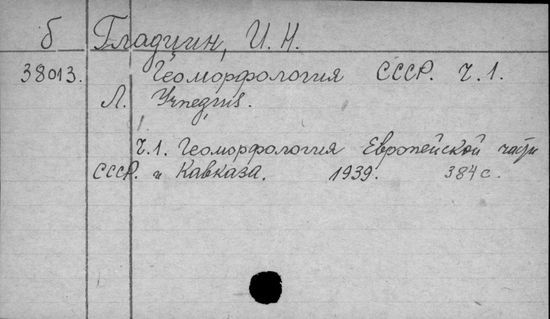 б Гладцин, И. Н.
38013. Геоморфология СССР. Ч.1.
Л. Учпедгиз.
Ч.1. Геоморфология Европейской части
СССР. и Кавказа. 1939. 384 с.